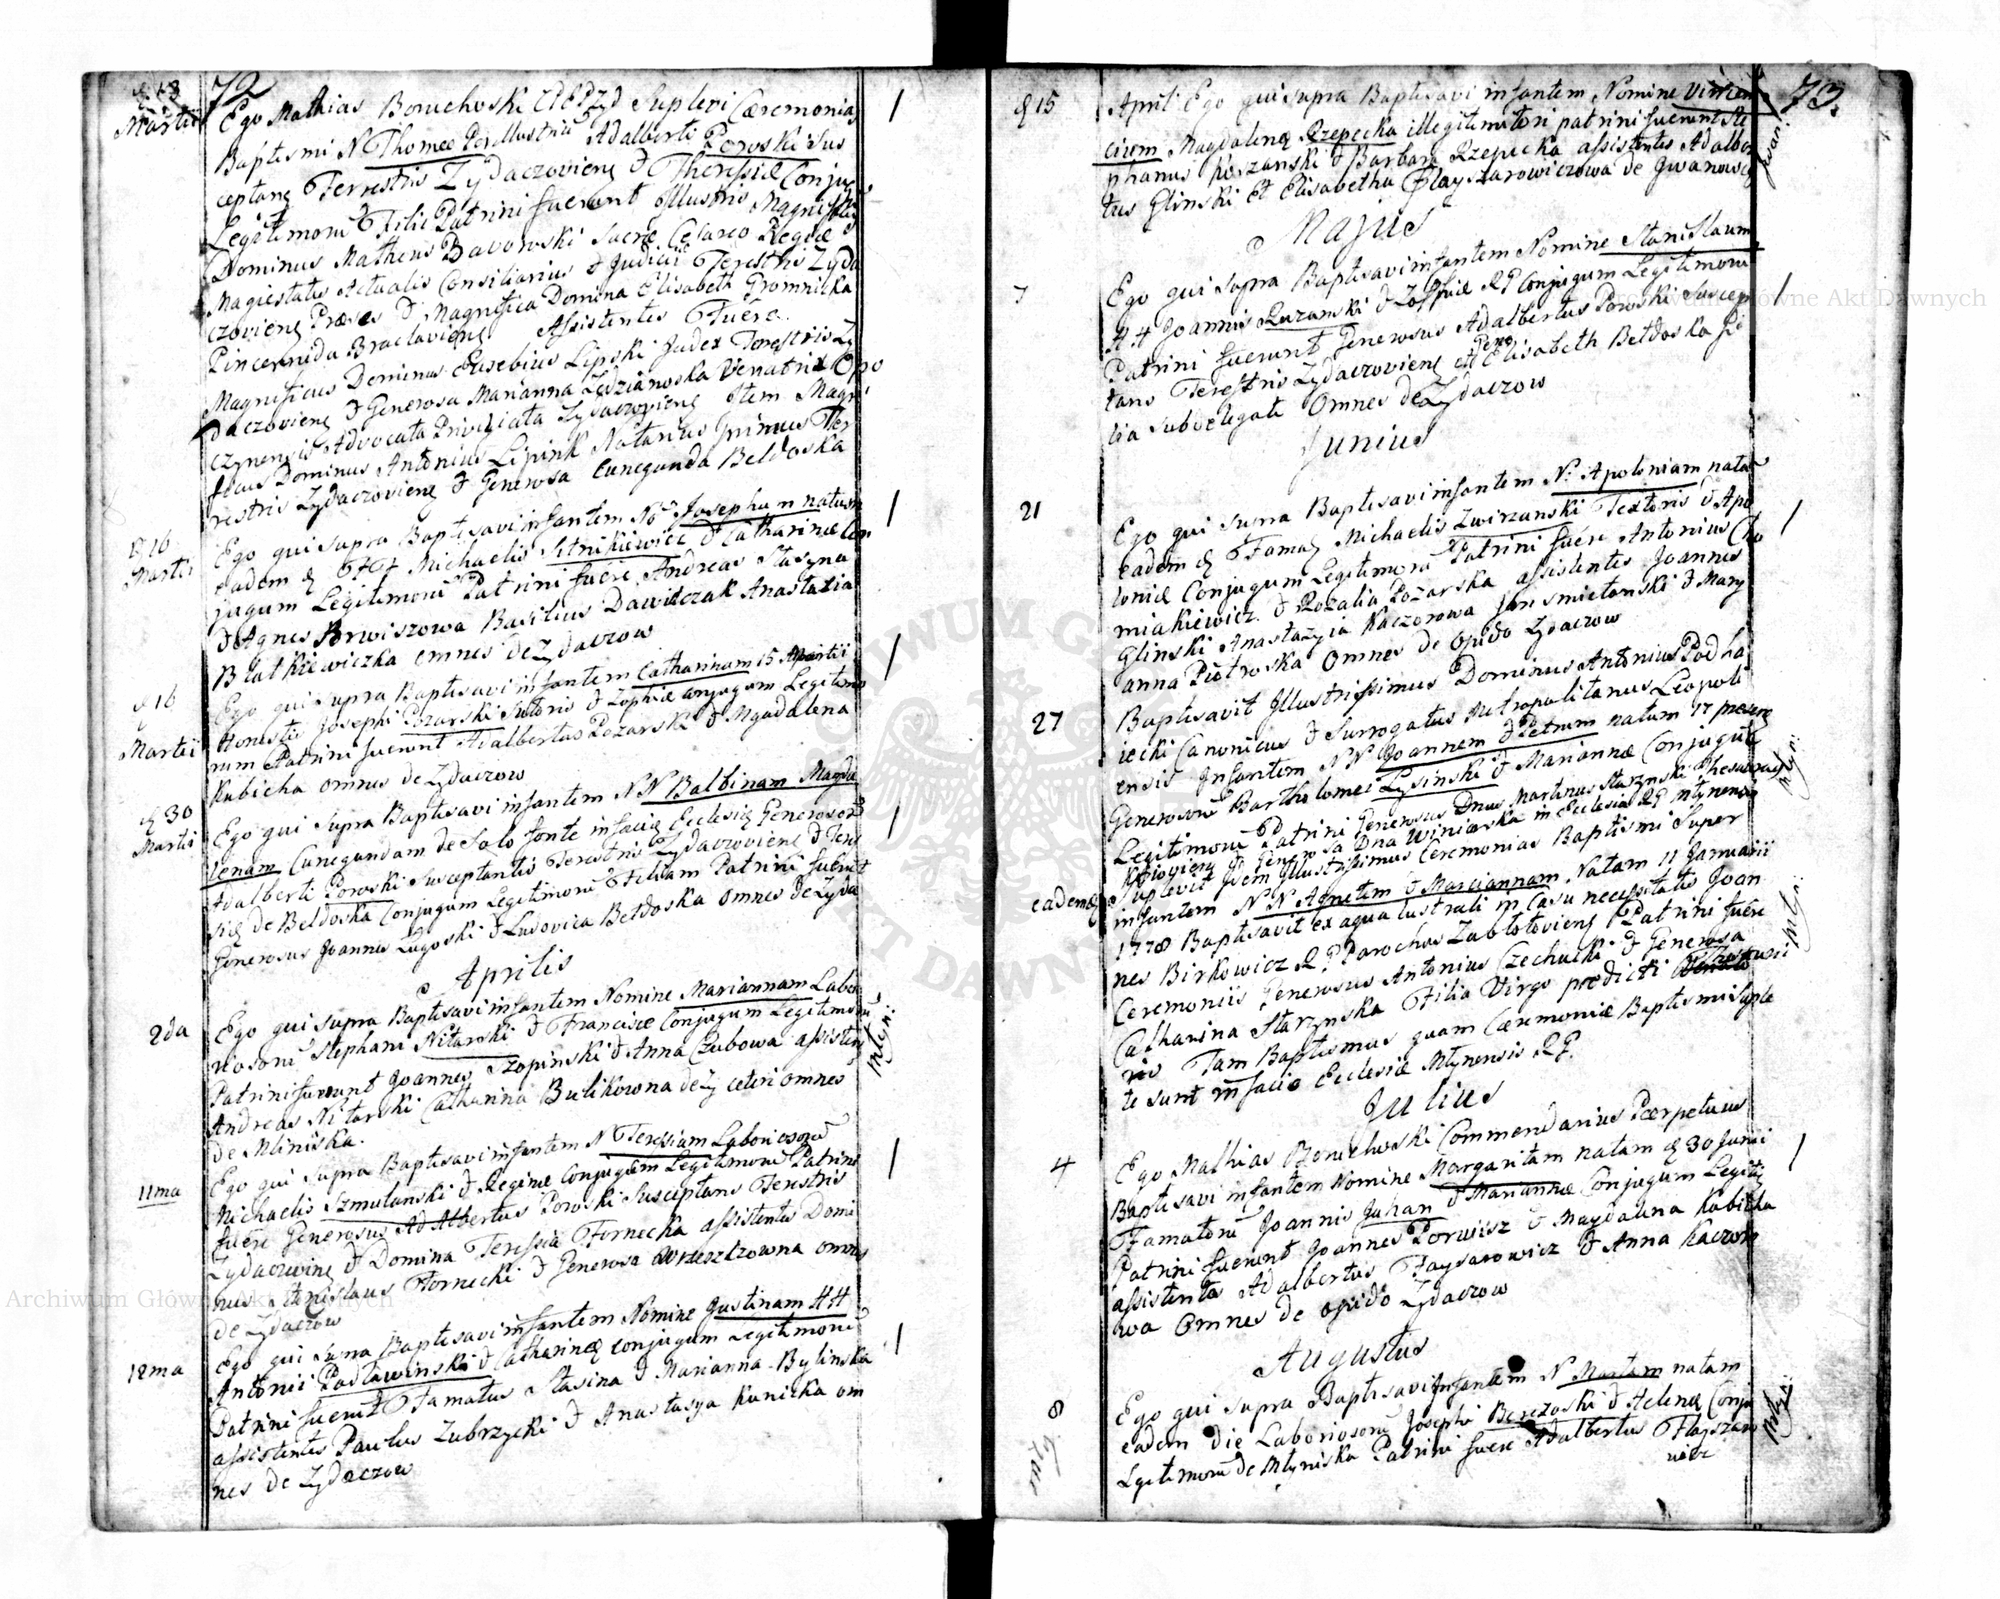 72
d 13 Martii
Ego Mathias Boruchoski CPEPZyd Suplevi Cæremonias
Baptismi N Thomæ Perillustris Adalberti Poroski Sus
ceptanę Terrestris Zydaczovienę & Theressiæ Conju
Legitimorū Filii Patrini fuerunt Illustris Magnificus
Dominus Matheus Baworski Sacræ Cesareo Regiæ
Magiestatis Actualis Consiliarius & Judicii Terestris Zyda
czovienę Præses & Magnifica Domina Elisabeth Gromnicka
Pincernida Braclavienę Assistentes Fuêre
Magnificus Dominus Eusebius Lipski Judex Terestris Zy
daczovienę & Generosa Marianna Ledzianoska Venatrix Opo
czynensis Advocata Privilegiata Zydaczovienę Item Magni
ficus Dominus Antonius Lipink Notarius primus Ter
restris Zydaczovienę & Generosa Cunegunda Beldoska
d 16 Martii
Ego qui supra Baptisavi infantem No Josephum natum
eadem ę Michaelis Sitnikiewicz & Catharinæ Con
jugum Legitimorū Patrini fuêre Andreas Staszyna
& Agnes Porwiszowa Basilius Dawidczak Anastazia
Blatkiewiczka omnes de Zydaczow
d 16 Martii
Ego qui supra Baptisavi infantem Catharinam 15 Martii
Honesti Josephi Pozarski Sutoris & Zophiæ conjugum Legitimo
rum Patrini fuerunt Adalbertus Pozarski & Mgadalena
Kubicka omnes de Zydaczow
ę 30 Martii
Ego qui supra Baptisavi infantem NN Balbinam Magda
lenam Cunegundam de Salo fonte in facię Ecclesię Generosorū
Adalberti Poroski Susceptantis Terestris Zydaczovienę & Teres
się de Beldoska Conjugum Legitimorū Filiam Patrini fuerūt
Generosus Joannes Lugoski & Ludovica Beldoska omnes de Zyda
Aprilis
2da
Ego qui supra Baptisavi infantem Nomine Mariannam Labo
riosorū Stephani Nitarski & Franciscæ Conjugum Legitimorū
Patrini fuerunt Joannes Szopinski & Anna Czubowa assisten
Andreas Nitarski Catharina Bulikowna de Zy ceteri omnes
de Mliniska.
Młyn:
11ma
Ego qui supra Baptisavi infantem N Teresiam Laboriosorū
Michaelis Szmulanski & Reginæ Conjugum Legitimorū Patrini
fuêre Generosus Adalbertus Poroski Susceptans Terestris
Zydaczovienę & Domina Teressia Fornecka assistentes Domi
nus Stanislaus Fornecki & Generosa Wrzeszczowna omnes
de Zydaczow
12ma
Ego qui supra Baptisavi infantem Nomine Justinam HH
Antonii Padlawinski & Catharinę conjugum Legitimorū
Patrini fuerūt Famatus Stasina & Marianna Bylinska
assistentes Paulus Zubrzycki & Anastasya Kunicka om
nes de Zydaczow
73
ę 15
April Ego qui supra Baptisavi infantem Nomine Vincen
cium Magdalenę Rzepecka illegitimi tori patrini fuerunt Ste
phanus Koszanski & Barbara Rzepecka assistentes Adalber
tus Glinski Et Elisabetha Flaysarowiczowa de Iwanowce
Iwan:
Majus
7
Ego qui supra Baptisavi infantem Nomine Stanislaum
HH Joannis Luzanski & Zoffiiæ RG Conjugum Legitimorū
Patrini fuerunt Generosus Adalbertus Poroski Suscep
tans Terestris Zydaczovienę et Elisabeth Beldoska fi
lia subdelegati Omnes de Zydaczow
Junius
21
Ego qui supra Baptisavi infantem N: Apoloniam nata
eadem ę Famaz Michaelis Zwirzanski Textoris & Apo
loniæ Conjugum Legitimorū Patrini fuêre Antonius Cho
miakiewicz & Rozalia Pozarska assistentes Joannes
Glinski Anastazyia Kaczorowa Jan Smietanski & Mary
anna Piotroska Omnes de Opido Zydaczow
27
Baptisavit Illustrissimus Dominus Antonius Podha
iecki Canonicus & Surrogatus Metropolitanus Leopoli
ensis Infantem NN Joannem & Petrum natum 17
Generosorū Bartholomei Lysinski & Mariannæ Conjugum
Legitimorū Patrini Generosus Dnus Martinus Starzynski Thesaurarii
Kijovienę & Generosa Dna Winiarska in Ecclesia RG Młynensi
Młyn:
eademę
Suplevit Idem Illustrissimus Ceremonias Baptismi Super
infantem NN Agnetem & Marciannam Natam 11 Januarii
1778 Baptisavit ex aqua lustrali in Casu necessitatis Joan
nes Birkowicz RG Parochus Zablotovienę Patrini fuêre
Ceremoniis Generosus Antonius Czechucki & Generosa
Catharina Starzynska Filia Virgo prædicti Thesaurarii
Tam Baptismus quam Cæremoniæ Baptismi Suple
te sunt in facie Ecclesiæ Młynensis RG.
Młyn:
Julius
4
Ego Mathias Boruchoski Commendarius Perpetuus
Baptisavi infantem Nomine Margaritam natam ę 30 Junii
Famatorū Joannis Juhan & Mariannæ Conjugum Legiti
Patrini fuerunt Joannes Porwisz & Magdalena Kubicka
assistentes Adalbertus Faysarowicz & Anna Kaczoro
wa Omnes de opido Zydaczow
Augustus
8
Ego qui supra Baptisavi Infantem N Martam natam
eadem die Laboriosorū Josephi Berezoski & Helenę Conju
Legitimorū de Młyniska Patrini fuere Adalbertus Flaysaro
wicz
Młyn:
Archiwum Główne Akt Dawnych
Archiwum Główne Akt Dawnych
ARCHIWUM GŁÓWNE AKT DAWNYCH